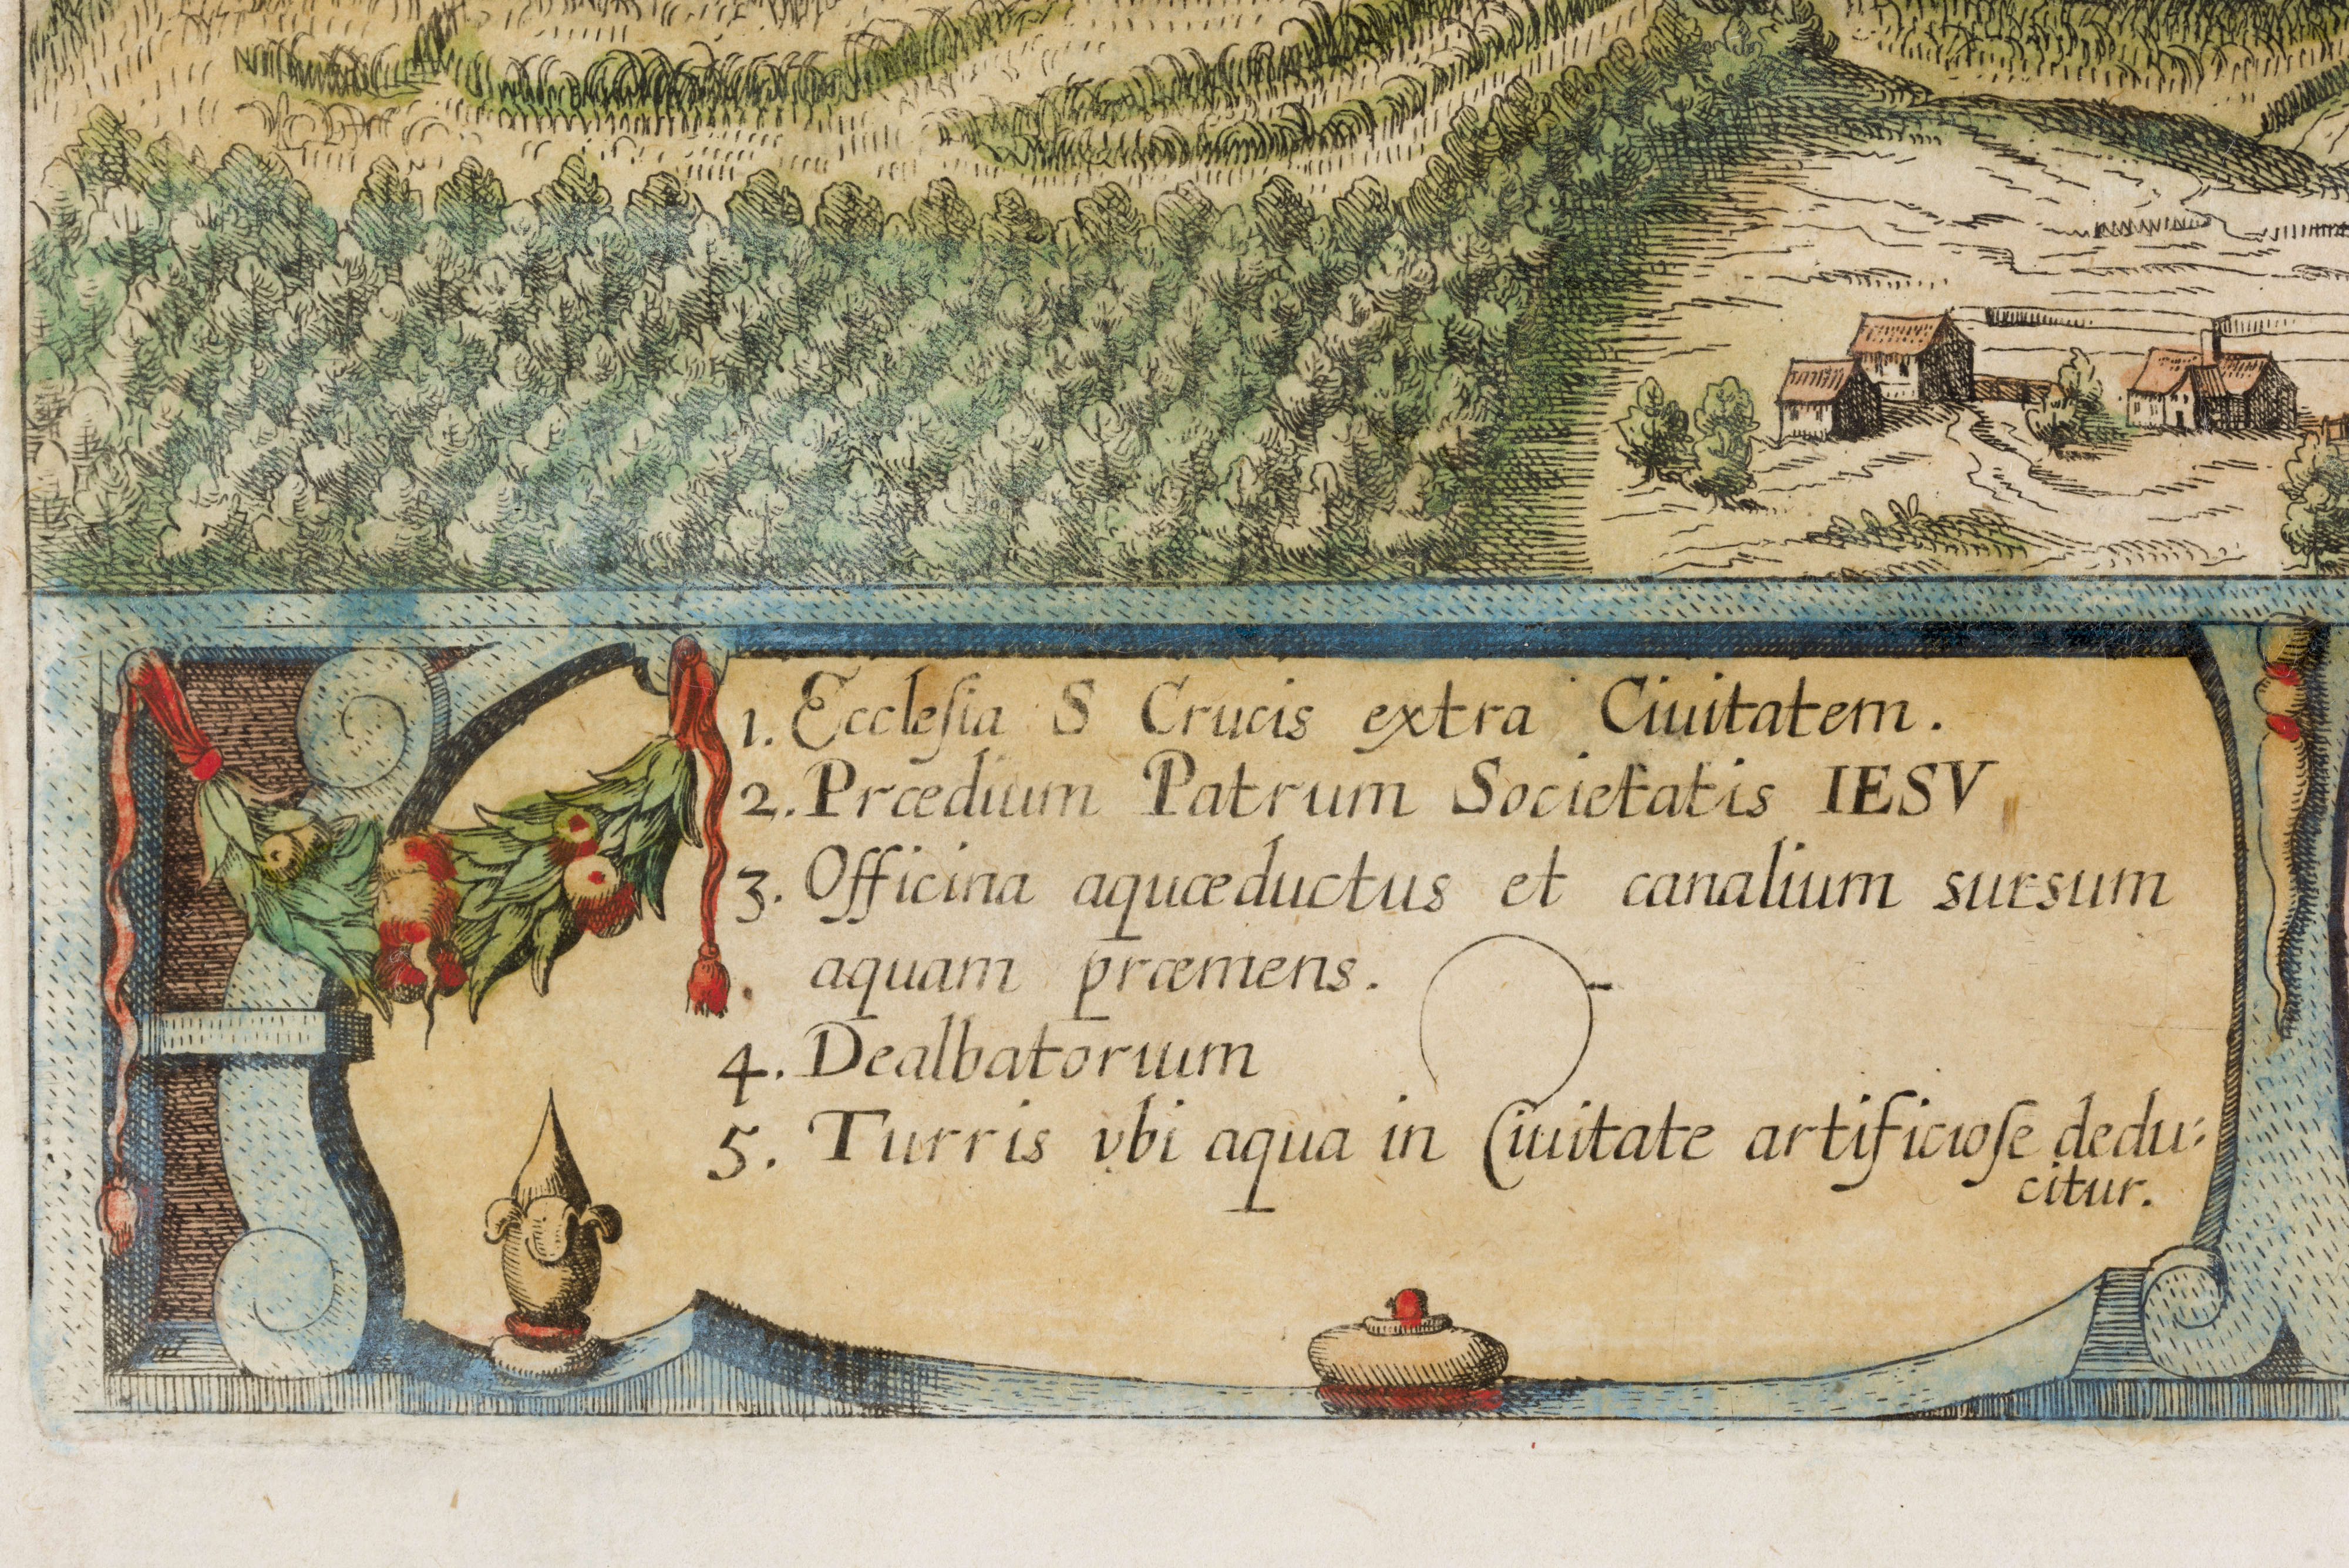 1. Eccleſia S Crucis extra Ciuitatem.
2. Prædium Patrum Societatis IESV
3. Officina aquæductus et canalium sursum
aquam præmens.
4. Dealbatorium
5. Turris vbi aqua in Ciuitate artificioſe dedu:
citur.